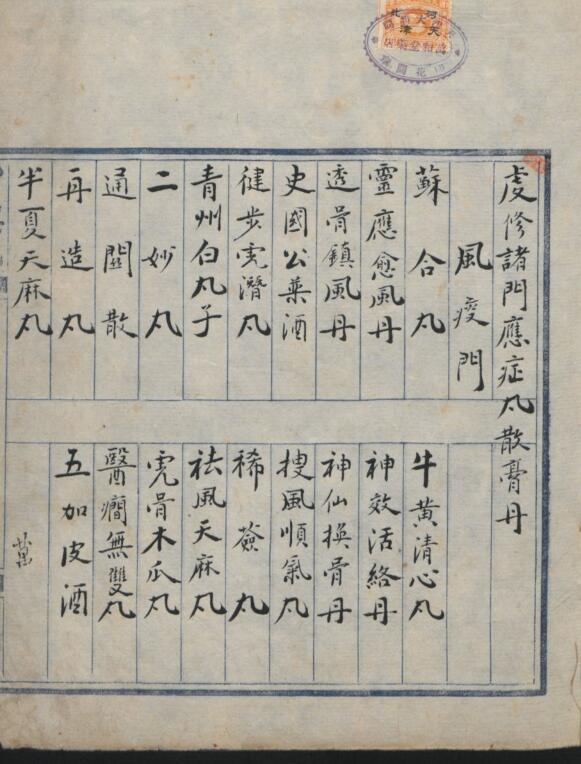 虔修諸門應症丸散膏丹
風痰門
蘇合丸 牛黃清心丸
靈應愈風丹 神效活絡丹
透骨鎮風丹 神仙換骨丹
史國公藥酒 搜風順氣丸
健步虎潛丸 稀薟丸
青州白丸子 祛風天麻丸
二妙丸 虎骨木瓜丸
通關散 醫癎無雙丸
再造丸 五加皮酒
半夏天麻丸